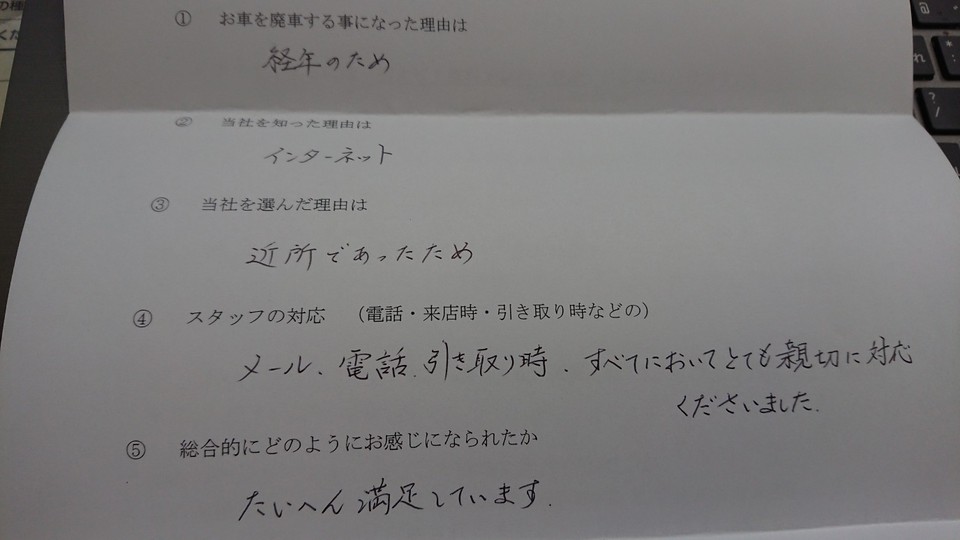 ① お車を廃車する事になった理由は
経年のため
② 当社を知った理由は
インターネット
③ 当社を選んだ理由は
近所であったため
④ スタッフの対応 （電話・来店時・引き取り時などの）
メール、電話、引き取り時、すべてにおいてとても親切に対応
くださいました。
⑤ 総合的にどのようにお感じになられたか
たいへん満足しています。